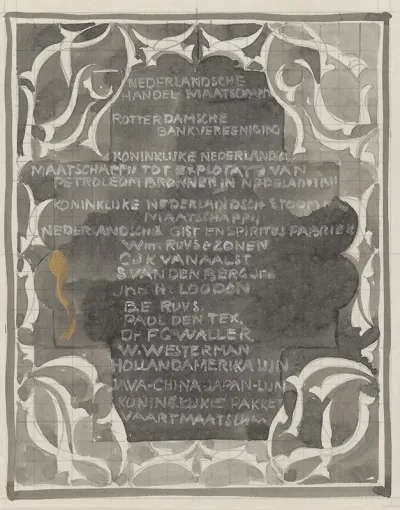 NEDERLANDSCHE
HANDEL MAATSCHAPP
ROTTERDAMSCHE
BANKVEREENIGING
KONINKLIJKE NEDERLANDS
MAATSCHAPPIJ TOT EXPLOITATIE VAN
PETROLEUM BRONNEN IN
KONINKLIJKE NEDERLANDSCH STOOM
MAATSCHAPPIJ,
NEDERLANDSCHE GIST EN SPIRITUS FABRIEK
Wm. RUYS & ZONEN
C.J.K. VAN AALST
S VAN DEN BERG Jr
Jhr H. LOUDON
B.E RUYS.
PAUL DEN TEX,
Dr F.G WALLER,
W. WESTERMAN
HOLLAND AMERIKA LIJN
JAVA-CHINA-JAPAN-LIJN
KONINKLIJKE PAKKET
VAART MAATSCH